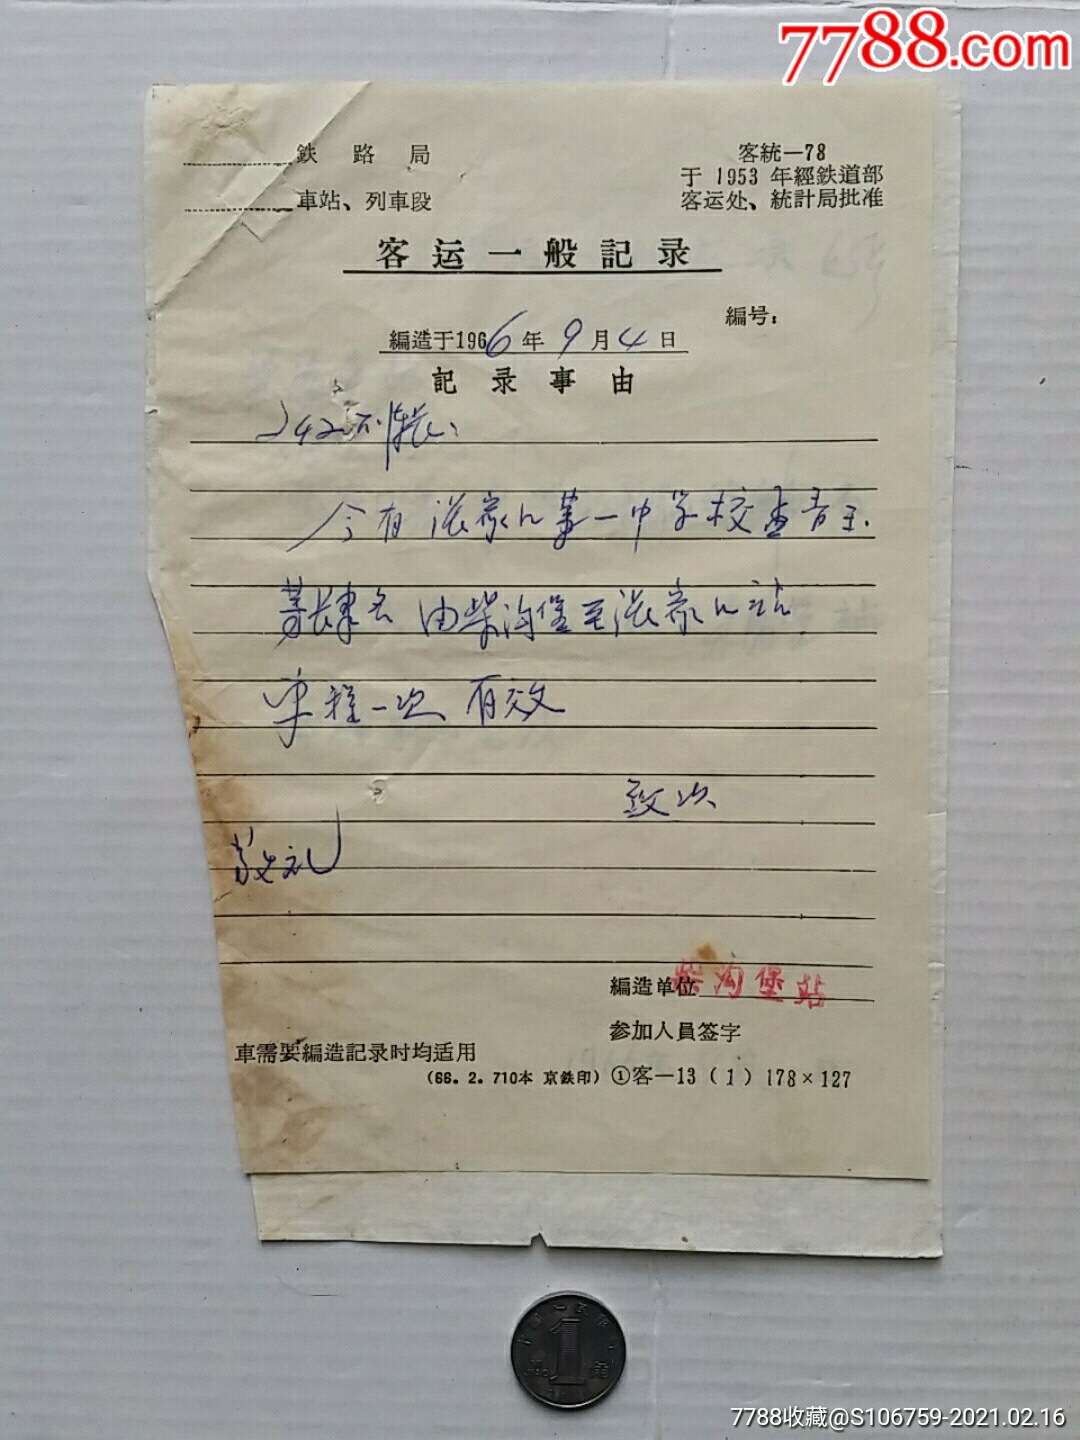 7788.com
鉄路局
車站、列車段
客統—78
于1953年經鉄道部
客运处、統計局批准
客运一般記录
編号：
編造于1966年9月4日
記录事由
242次列車长：
今有 张家口第一中学校
等肆名 由柴沟堡至张家口站
单程一次 有效
致以
敬礼
編造单位 柴沟堡站
参加人員签字
車需要編造記录时均适用
(66.2.710本 京鉄印) ①客—13（1）178×127
1角
7788收藏@S106759-2021.02.16